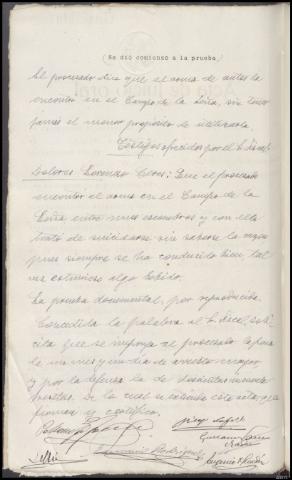 (Se dió comienzo a la prueba)
El procesado dice que el arma de autos la
encontró en el Campo de la Leña, sin tener
jamás el menor propósito de utilizarla.
Testigos ofrecidos por el
Dolores Lorenzo : Que el procesado
encontró el arma en el Campo de la
Leña entre unos escombros y con ella
trató de suicidarse sin saberse la razón
pues siempre se ha conducido bien, tal
vez estuviese algo bebido.
La prueba documental, por reproducida.
Concedida la palabra al solicita
que se imponga al procesado la pena
de un mes y un día de arresto mayor,
y por la defensa la de doscientas cincuenta
pesetas. De lo cual se extiende esta acta que
firman y certifico.
Rodríguez